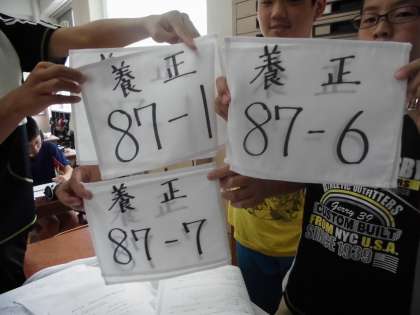 養正
87-1
養正
87-6
養正
87-7
ATHLETIC OUTFITTERS
CUSTOM BUILT
FROM NYC U.S.A.
SINCE 1939